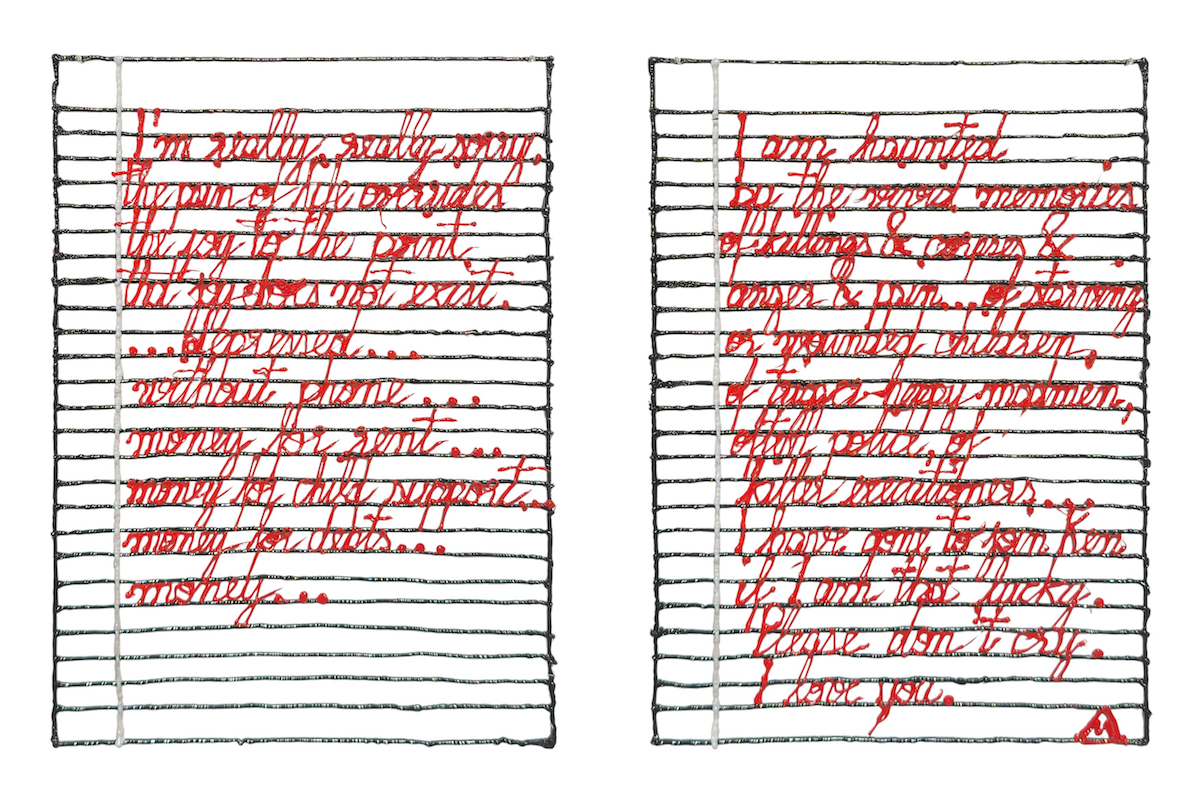 I'm really, really sorry.
the pain of life overrides
the joy to the point
that joy does not exist.
...depressed...
without phone...
money for rent...
money for child support...
money for debts...
money...
I am haunted
by the vivid memories
of killings & corpses &
anger & pain...of starving
or wounded children,
of trigger-happy madmen,
often police, of
killer executioners...
I have gone to join Ken
if I am that lucky.
Please don't cry.
I love you.